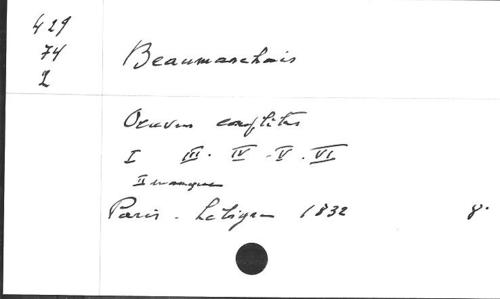 429
74
2
Beaumarchais
Oeuvres complètes
I III. IV - V. VI
II manque
Paris - 1832 8.